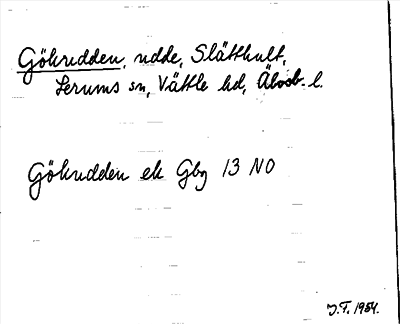 Gökudden, udde, Slätthult,
Lerums sn, Vättle hd, Älvsb. l.
Gökudden ek Gbg 13 NO
J.F. 1954.